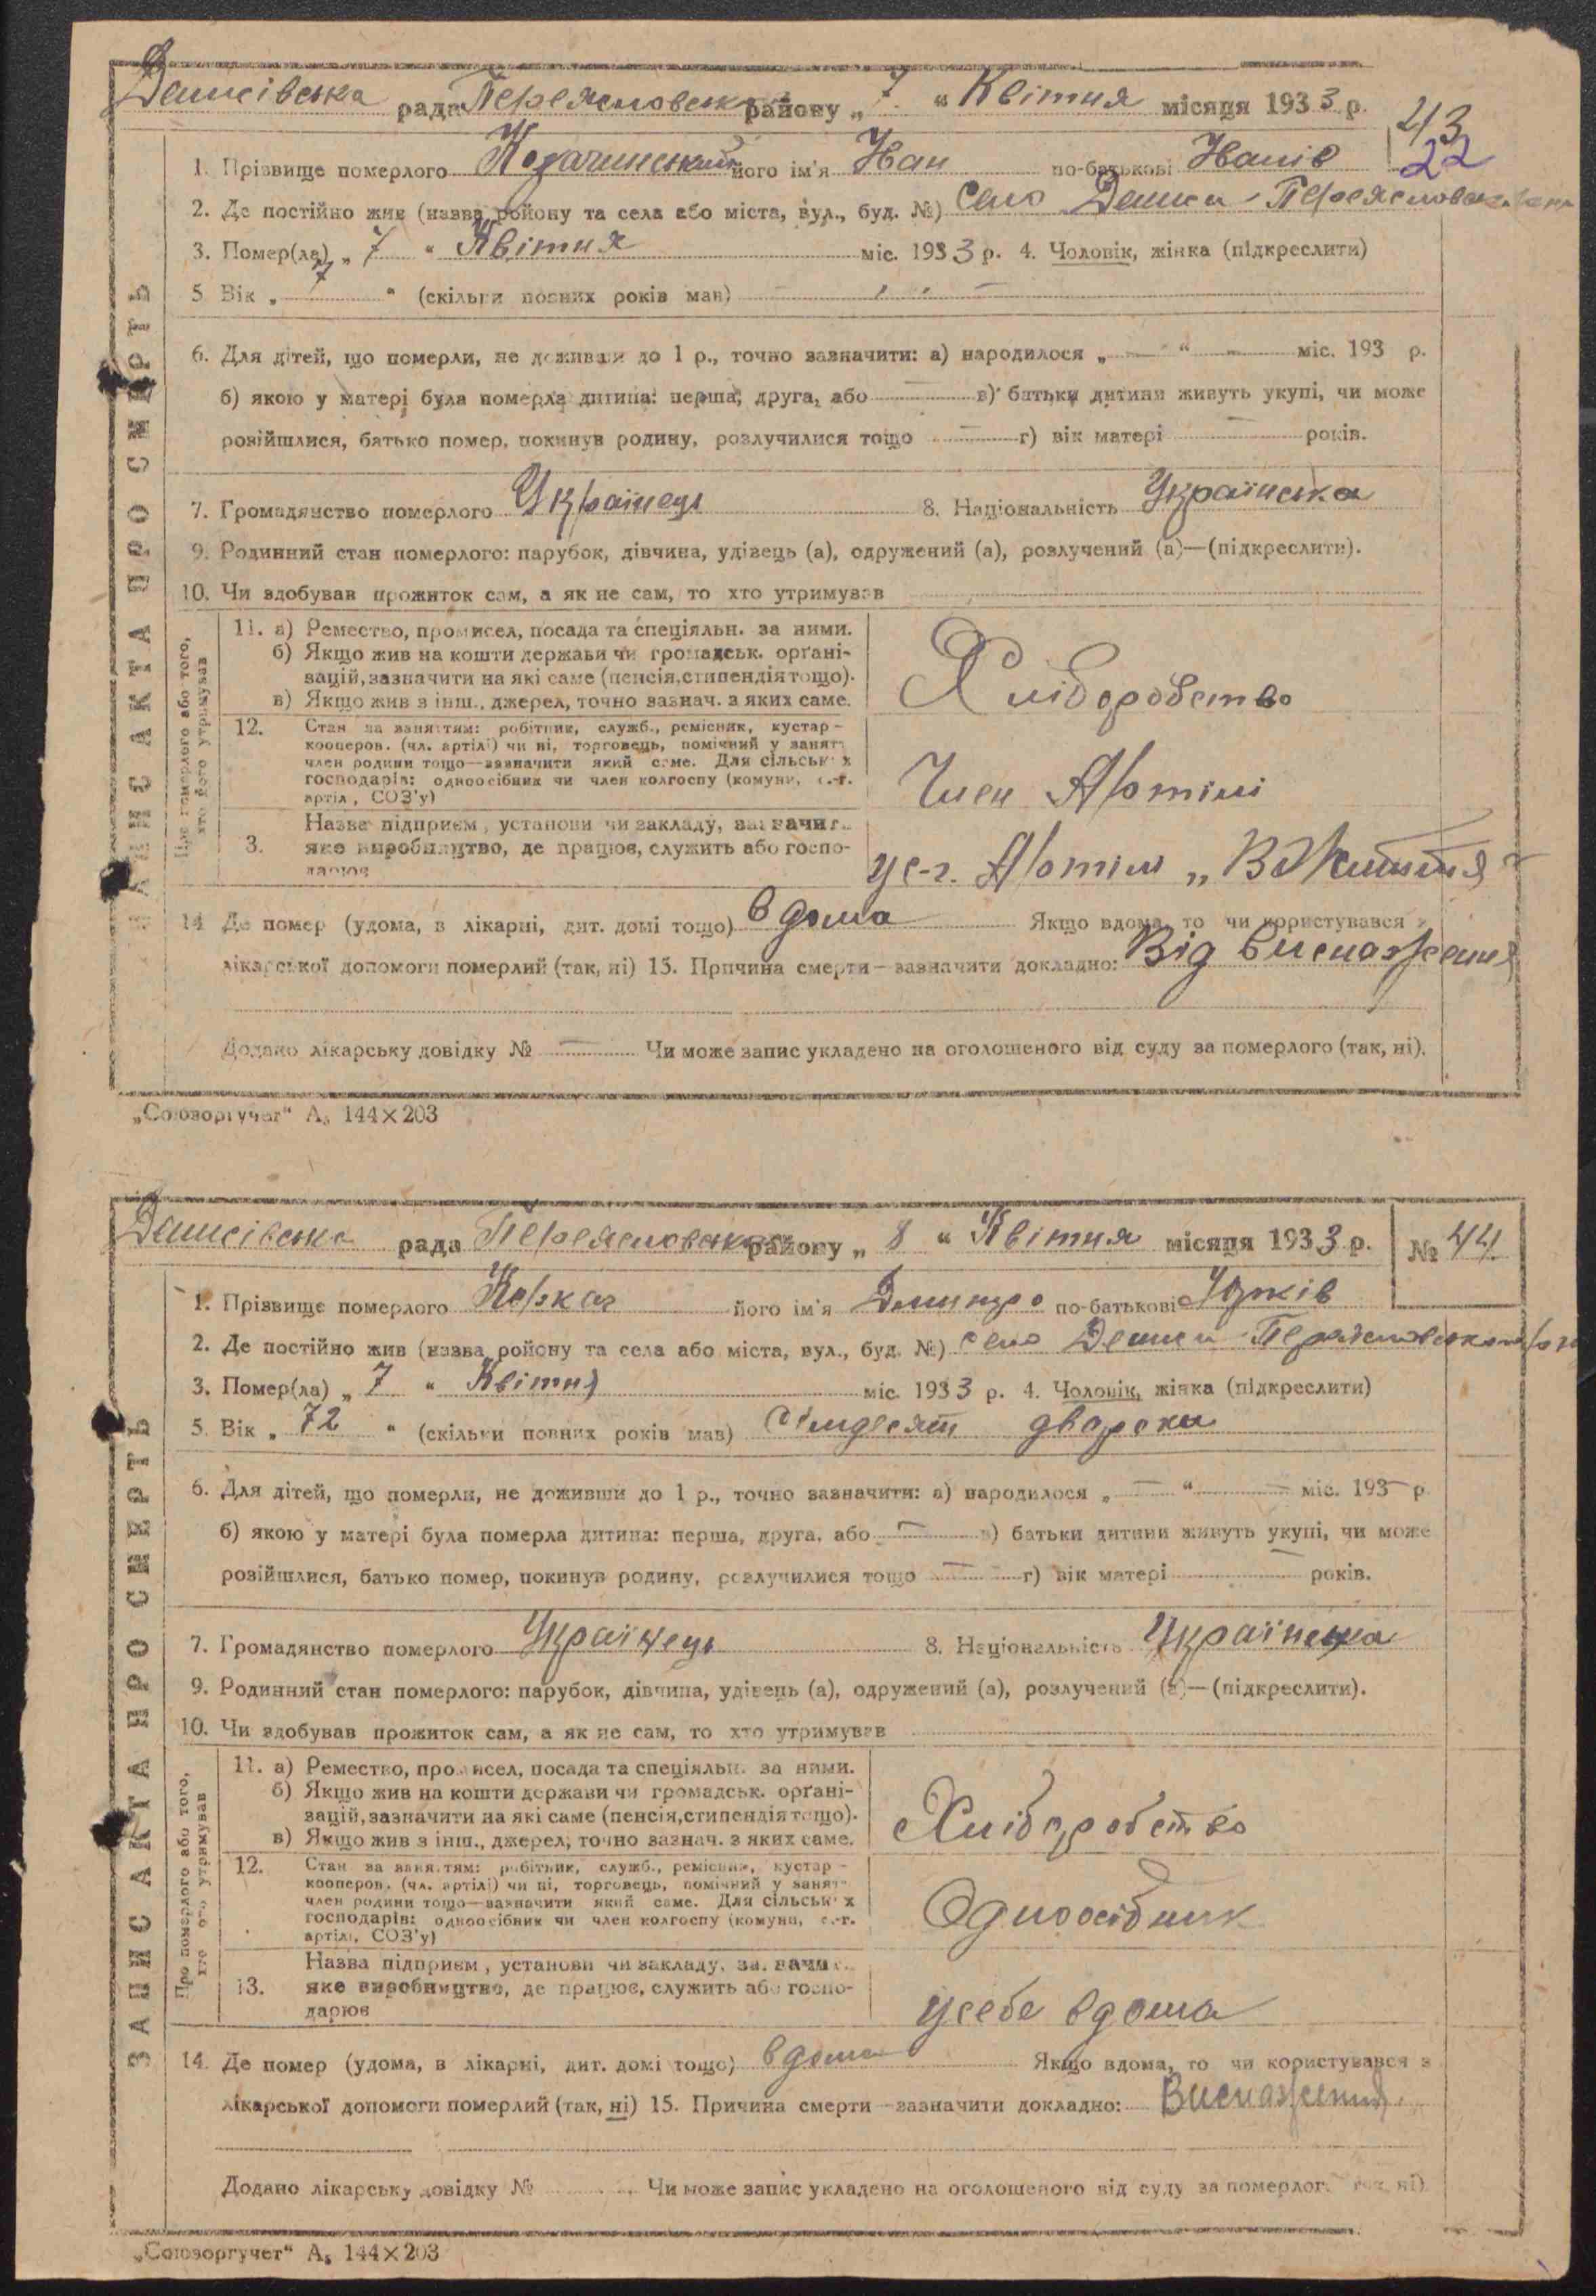 Демківська рада Переяславського району „ 7 “ Квітня місяця 1933 р.
43
22
1. Прізвище померлого його ім'я Іван по-батькові Іванів
2. Де постійно жив (назва ройону та села або міста, вул., буд. №) Село Демки Переяславськ
3. Помер(ла) „ 7 “ Квітня міс. 1933 р. 4. Чоловік, жінка (підкреслити)
5 Вік „ 7 “ (скільки повних років мав) —
6. Для дітей, що померли, не доживши до 1 р., точно зазначити: а) народилося „ — “ — міс. 193 р.
б) якою у матері була померла дитина: перша, друга, або — в) батьки дитини живуть укупі, чи може
розійшлися, батько помер, покинув родину, розлучилися тощо — г) вік матері — років.
7. Громадянство померлого Українець 8. Національність Українська
9. Родинний стан померлого: парубок, дівчина, удівець (а), одружений (а), розлучений (а)—(підкреслити).
10. Чи здобував прожиток сам, а як не сам, то хто утримував
ЗАПИС АКТА ПРО СМЕРТЬ
Про померлого або того, хто його утримував
11. а) Ремество, промисел, посада та спеціяльн. за ними.
б) Якщо жив на кошти держави чи громадськ. орґані-
зацій, зазначити на які саме (пенсія, стипендія тощо).
в) Якщо жив з інш., джерел, точно зазнач. з яких саме.
Хліборобство
12. Стан за заняттям: робітник, служб., ремісник, кустар -
кооперов. (чл. артілі) чи ні, торговець, помічний у занятт
член родини тощо—зазначити який саме. Для сільськ х
господарів: одноосібник чи член колгоспу (комуни, с.-г.
артіл , СОЗ'у)
Член Артілі
3. Назва підприєм , установи чи закладу, зазначит
яке виробництво, де працює, служить або госпо-
дарює
у с-г. Артілі „ В Життя
14 Де помер (удома, в лікарні, дит. домі тощо) вдома Якщо вдома, то чи користувався з
лікарської допомоги померлий (так, ні) 15. Причина смерти — зазначити докладно: Від виснаження
Додано лікарську довідку № — Чи може запис укладено на оголошеного від суду за померлого (так, ні).
„Союзоргучет“ А₅ 144×203
Демківська рада Переяславського району „ 8 “ Квітня місяця 1933 р. № 44
1. Прізвище померлого його ім'я Дмитро по-батькові
2. Де постійно жив (назва ройону та села або міста, вул., буд. №) Село Демки Переяславського
3. Помер(ла) „ 7 “ Квітня міс. 1933 р. 4. Чоловік, жінка (підкреслити)
5. Вік „ 72 “ (скільки повних років мав) Сімдесят два роки
6. Для дітей, що померли, не доживши до 1 р., точно зазначити: а) народилося „ — “ — міс. 193— р
б) якою у матері була померла дитина: перша, друга, або — в) батьки дитини живуть укупі, чи може
розійшлися, батько помер, покинув родину, розлучилися тощо — г) вік матері — років.
7. Громадянство померлого Українець 8. Національність Українська
9. Родинний стан померлого: парубок, дівчина, удівець (а), одружений (а), розлучений (а)—(підкреслити).
10. Чи здобував прожиток сам, а як не сам, то хто утримував
ЗАПИС АКТА ПРО СМЕРТЬ
Про померлого або того, хто його утримував
11. а) Ремество, промисел, посада та спеціяльн. за ними.
б) Якщо жив на кошти держави чи громадськ. орґані-
зацій, зазначити на які саме (пенсія, стипендія тощо).
в) Якщо жив з інш., джерел, точно зазнач. з яких саме.
Хліборобство
12. Стан за заняттям: робітник, служб., ремісник, кустар -
кооперов. (чл. артілі) чи ні, торговець, помічний у занятт
член родини тощо—зазначити який саме. Для сільськ х
господарів: одноосібник чи член колгоспу (комуни, с.-г.
артілі, СОЗ'у)
Одноосібник
13. Назва підприєм , установи чи закладу, зазначит
яке виробництво, де працює, служить або госпо-
дарює
усебе вдома
14. Де помер (удома, в лікарні, дит. домі тощо) вдома Якщо вдома, то чи користувався з
лікарської допомоги померлий (так, ні) 15. Причина смерти — зазначити докладно: Виснаження
Додано лікарську довідку № Чи може запис укладено на оголошеного від суду за померлог (так, ні)
„Союзоргучет“ А₅ 144×203